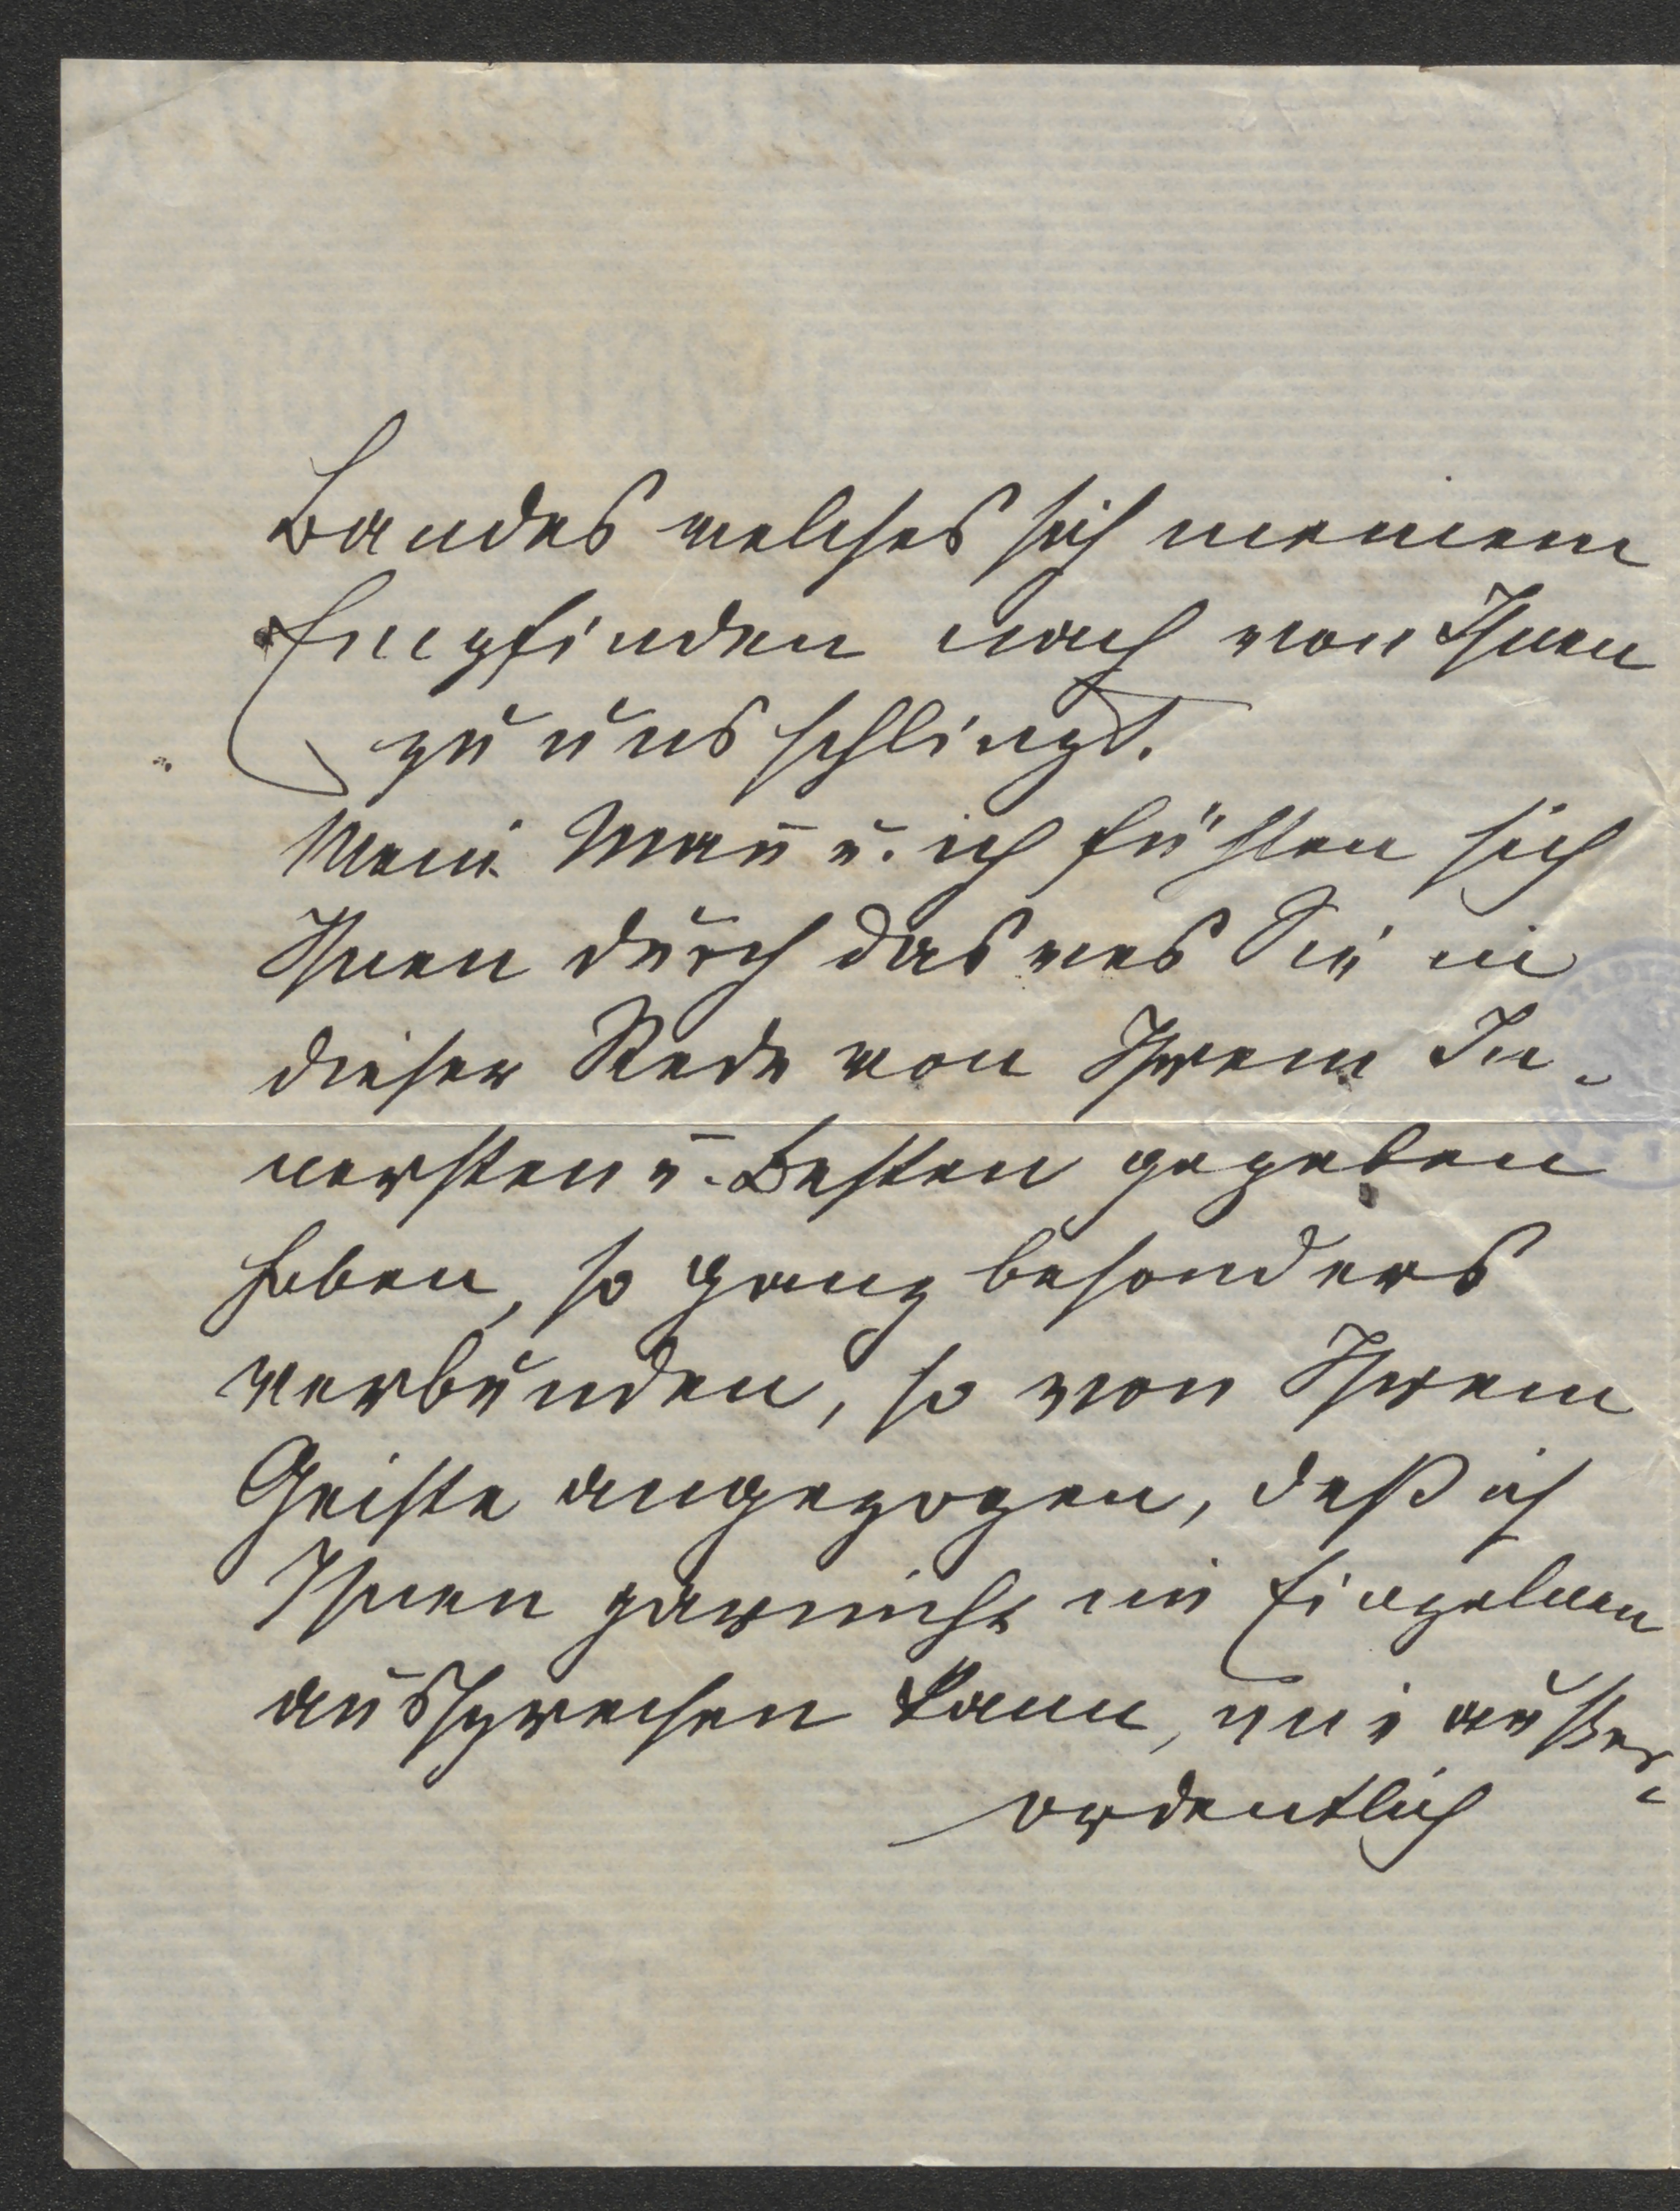 Bandes welches sich meinem
Empfinden nach von Ihnen
zu uns schlingt.
Mein Man̅ u. ich fühlen sich
Ihnen durch das was Sie in
dieser Rede von Ihrem In-
nersten u. Besten gegeben
haben, so ganz besonders
verbunden, so von Ihrem
Geiste angezogen, daß ich
Ihnen garnicht im Einzelnen
aussprechen kann, wie außer-
ordentlich